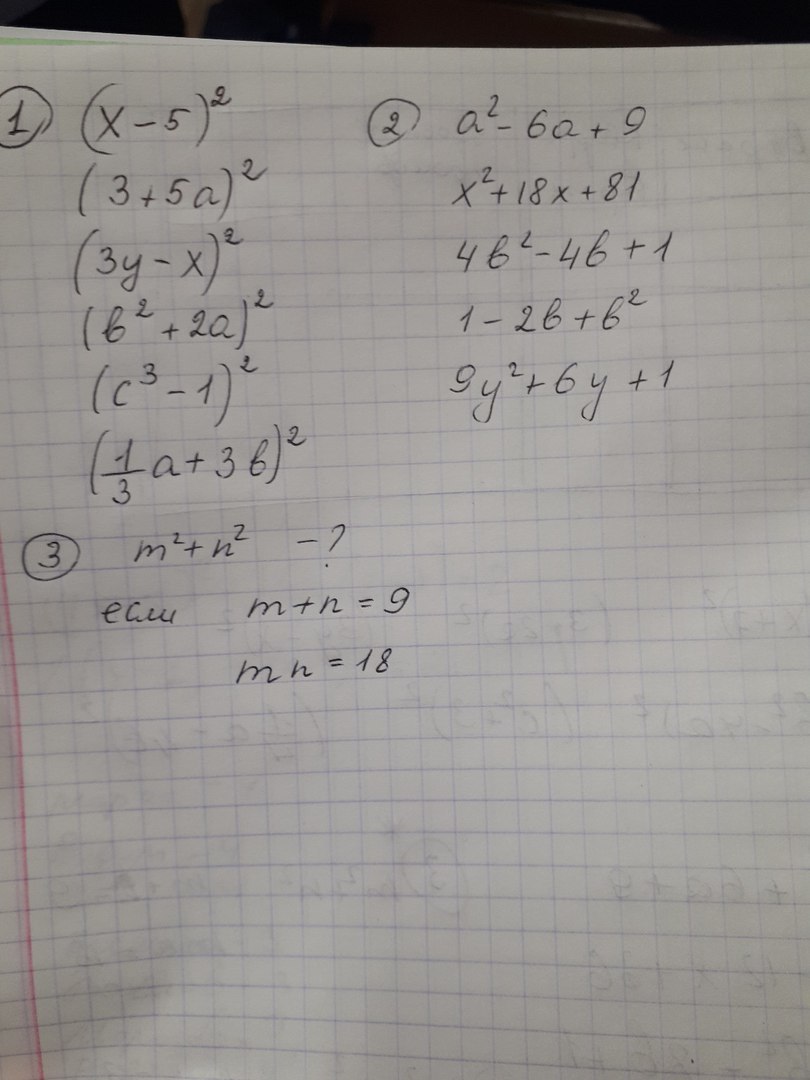 ① (x - 5)²
(3 + 5a)²
(3y - x)²
(b² + 2a)²
(c³ - 1)²
(1/3 a + 3b)²
② a² - 6a + 9
x² + 18x + 81
4b² - 4b + 1
1 - 2b + b²
9y² + 6y + 1
③ m² + n² - ?
если m + n = 9
mn = 18